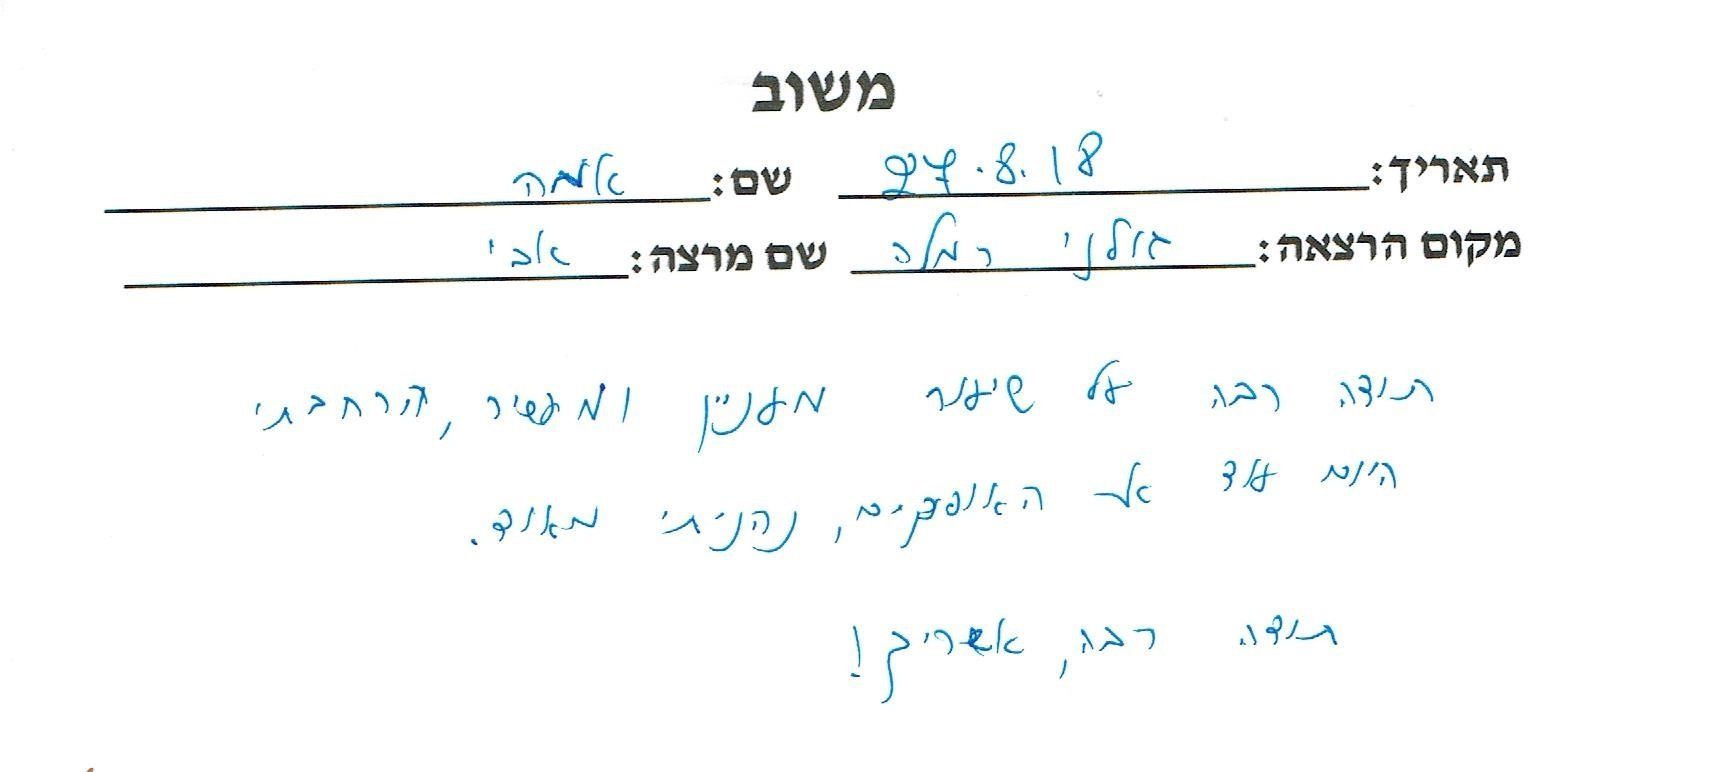 משוב
תאריך: 27.8.18 שם: אמה
מקום הרצאה: גולני רמלה שם מרצה: אבי
תודה רבה על שיעור מעניין ומעשיר, הרחבתי
היום עוד את האופקים, נהניתי מאוד.
תודה רבה, אשריך!